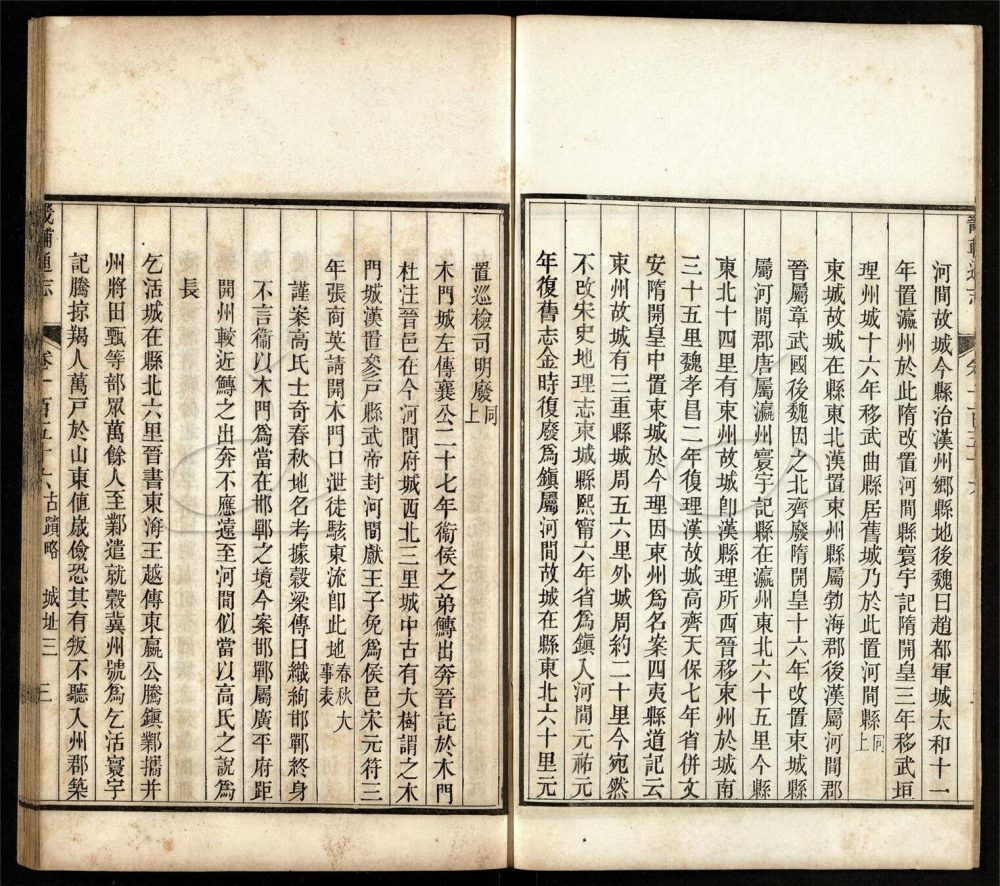 河間故城今縣治漢州鄉縣地後魏曰趙都軍城太和十一
年置瀛州於此隋改置河間縣寰宇記隋開皇三年移武垣
理州城十六年移武曲縣居舊城乃於此置河間縣同上
東城故城在縣東北漢置東州縣屬勃海郡後漢屬河間郡
晉屬章武國後魏因之北齊廢隋開皇十六年改置東城縣
屬河間郡唐屬瀛州寰宇記縣在瀛州東北六十五里今縣
東北十四里有東州故城卽漢縣理所西晉移東州於城南
三十五里魏孝昌二年復理漢故城高齊天保七年省併文
安隋開皇中置東城於今理因東州爲名案四夷縣道記云
東州故城有三重縣城周五六里外城周約二十里今宛然
不改宋史地理志東城縣熙甯六年省爲鎮入河間元祐元
年復舊志金時復廢爲鎮屬河間故城在縣東北六十里元
置巡檢司明廢同上
木門城左傳襄公二十七年衞侯之弟鱄出奔晉託於木門
杜注晉邑在今河間府城西北三里城中古有大樹謂之木
門城漢置參戸縣武帝封河間獻王子免爲侯邑宋元符三
年張商英請開木門口泄徒駭東流卽此地春秋大事表
謹案高氏士奇春秋地名考據穀梁傳曰織絇邯鄲終身
不言衞以木門爲當在邯鄲之境今案邯鄲屬廣平府距
開州較近鱄之出奔不應遠至河間似當以高氏之說爲
長
乞活城在縣北六里晉書東海王越傳東嬴公騰鎮鄴攜并
州將田甄等部眾萬餘人至鄴遣就穀冀州號爲乞活寰宇
記騰掠羯人萬戸於山東値歲儉恐其有叛不聽入州郡築
畿輔通志 卷一百五十六 古蹟略 城址三 三